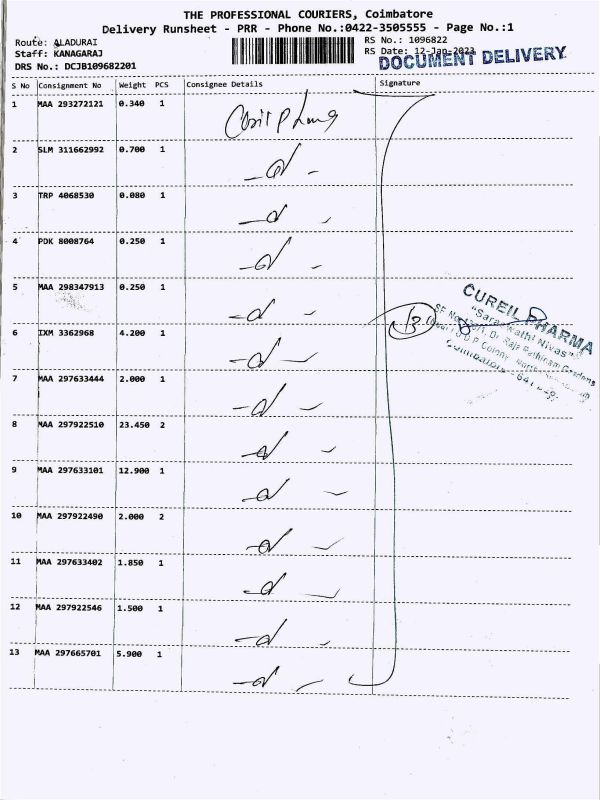 THE PROFESSIONAL COURIERS, Coimbatore
Delivery Runsheet - PRR - Phone No.:0422-3505555 - Page No.:1
Route: ALADURAI
Staff: KANAGARAJ
DRS No.: DCJB109682201
RS No.: 1096822
RS Date: 12-Jan-2023
DOCUMENT DELIVERY
S No Consignment No Weight PCS Consignee Details Signature
1 MAA 293272121 0.340 1
2 SLM 311662992 0.700 1
3 TRP 4068530 0.080 1
4 PDK 8008764 0.250 1
5 MAA 298347913 0.250 1
6 IXM 3362968 4.200 1
7 MAA 297633444 2.000 1
8 MAA 297922510 23.450 2
9 MAA 297633101 12.900 1
10 MAA 297922490 2.000 2
11 MAA 297633402 1.850 1
12 MAA 297922546 1.500 1
13 MAA 297665701 5.900 1
CUREIL PHARMA
"Saraswathi Nivas"